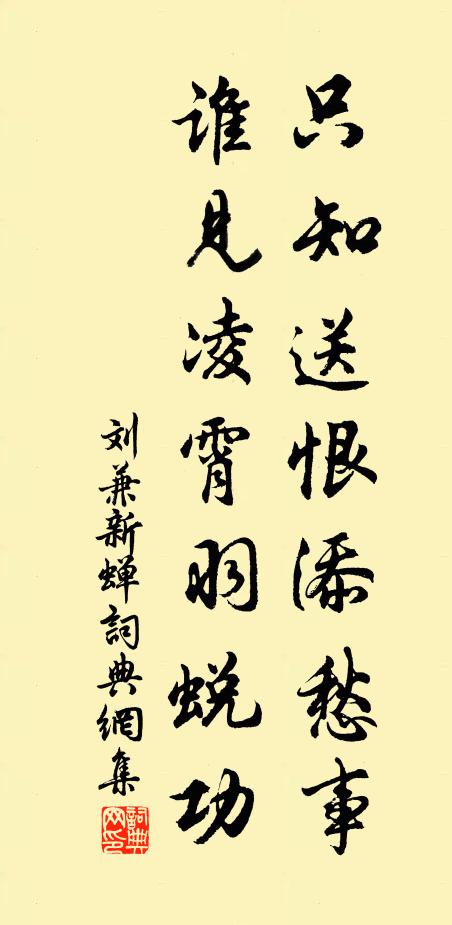 只知送恨添愁事
谁见凌霄羽蜕功
刘兼新蝉詞典網集
詞典网印